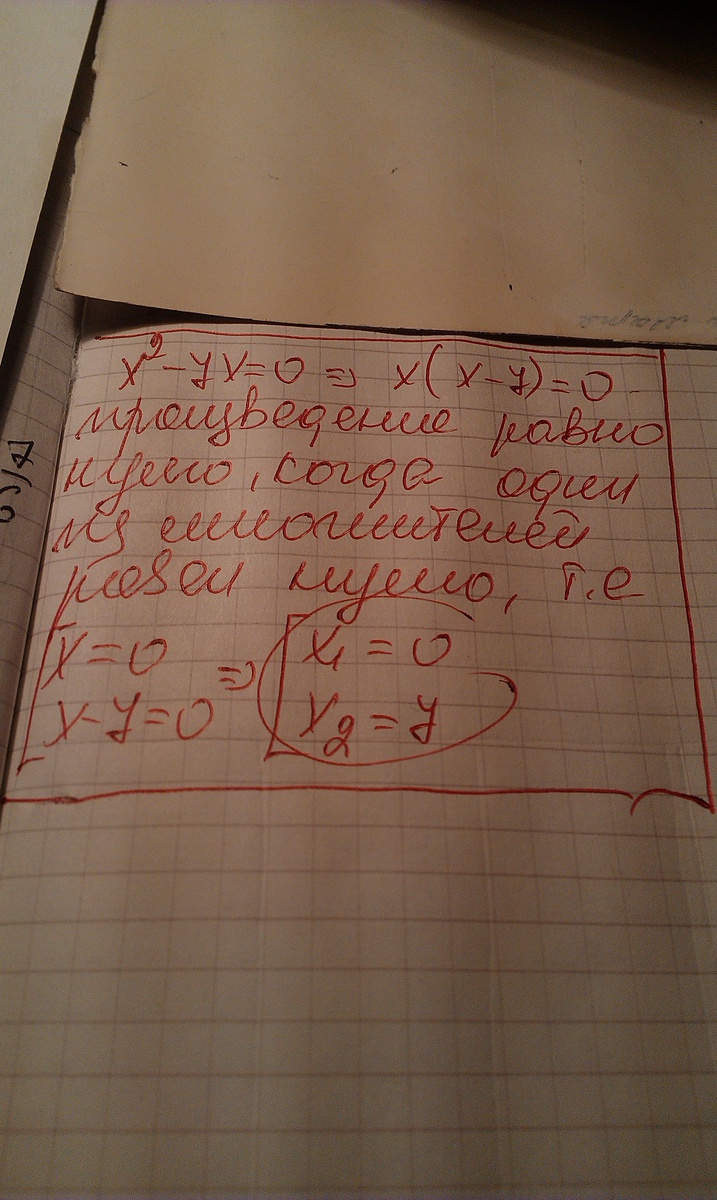 x² - 7x = 0 ⇒ x(x-7) = 0
произведение равно
нулю, когда один
из множителей
равен нулю, т.е
[x = 0 ⇒ [x₁ = 0
x-7 = 0 x₂ = 7